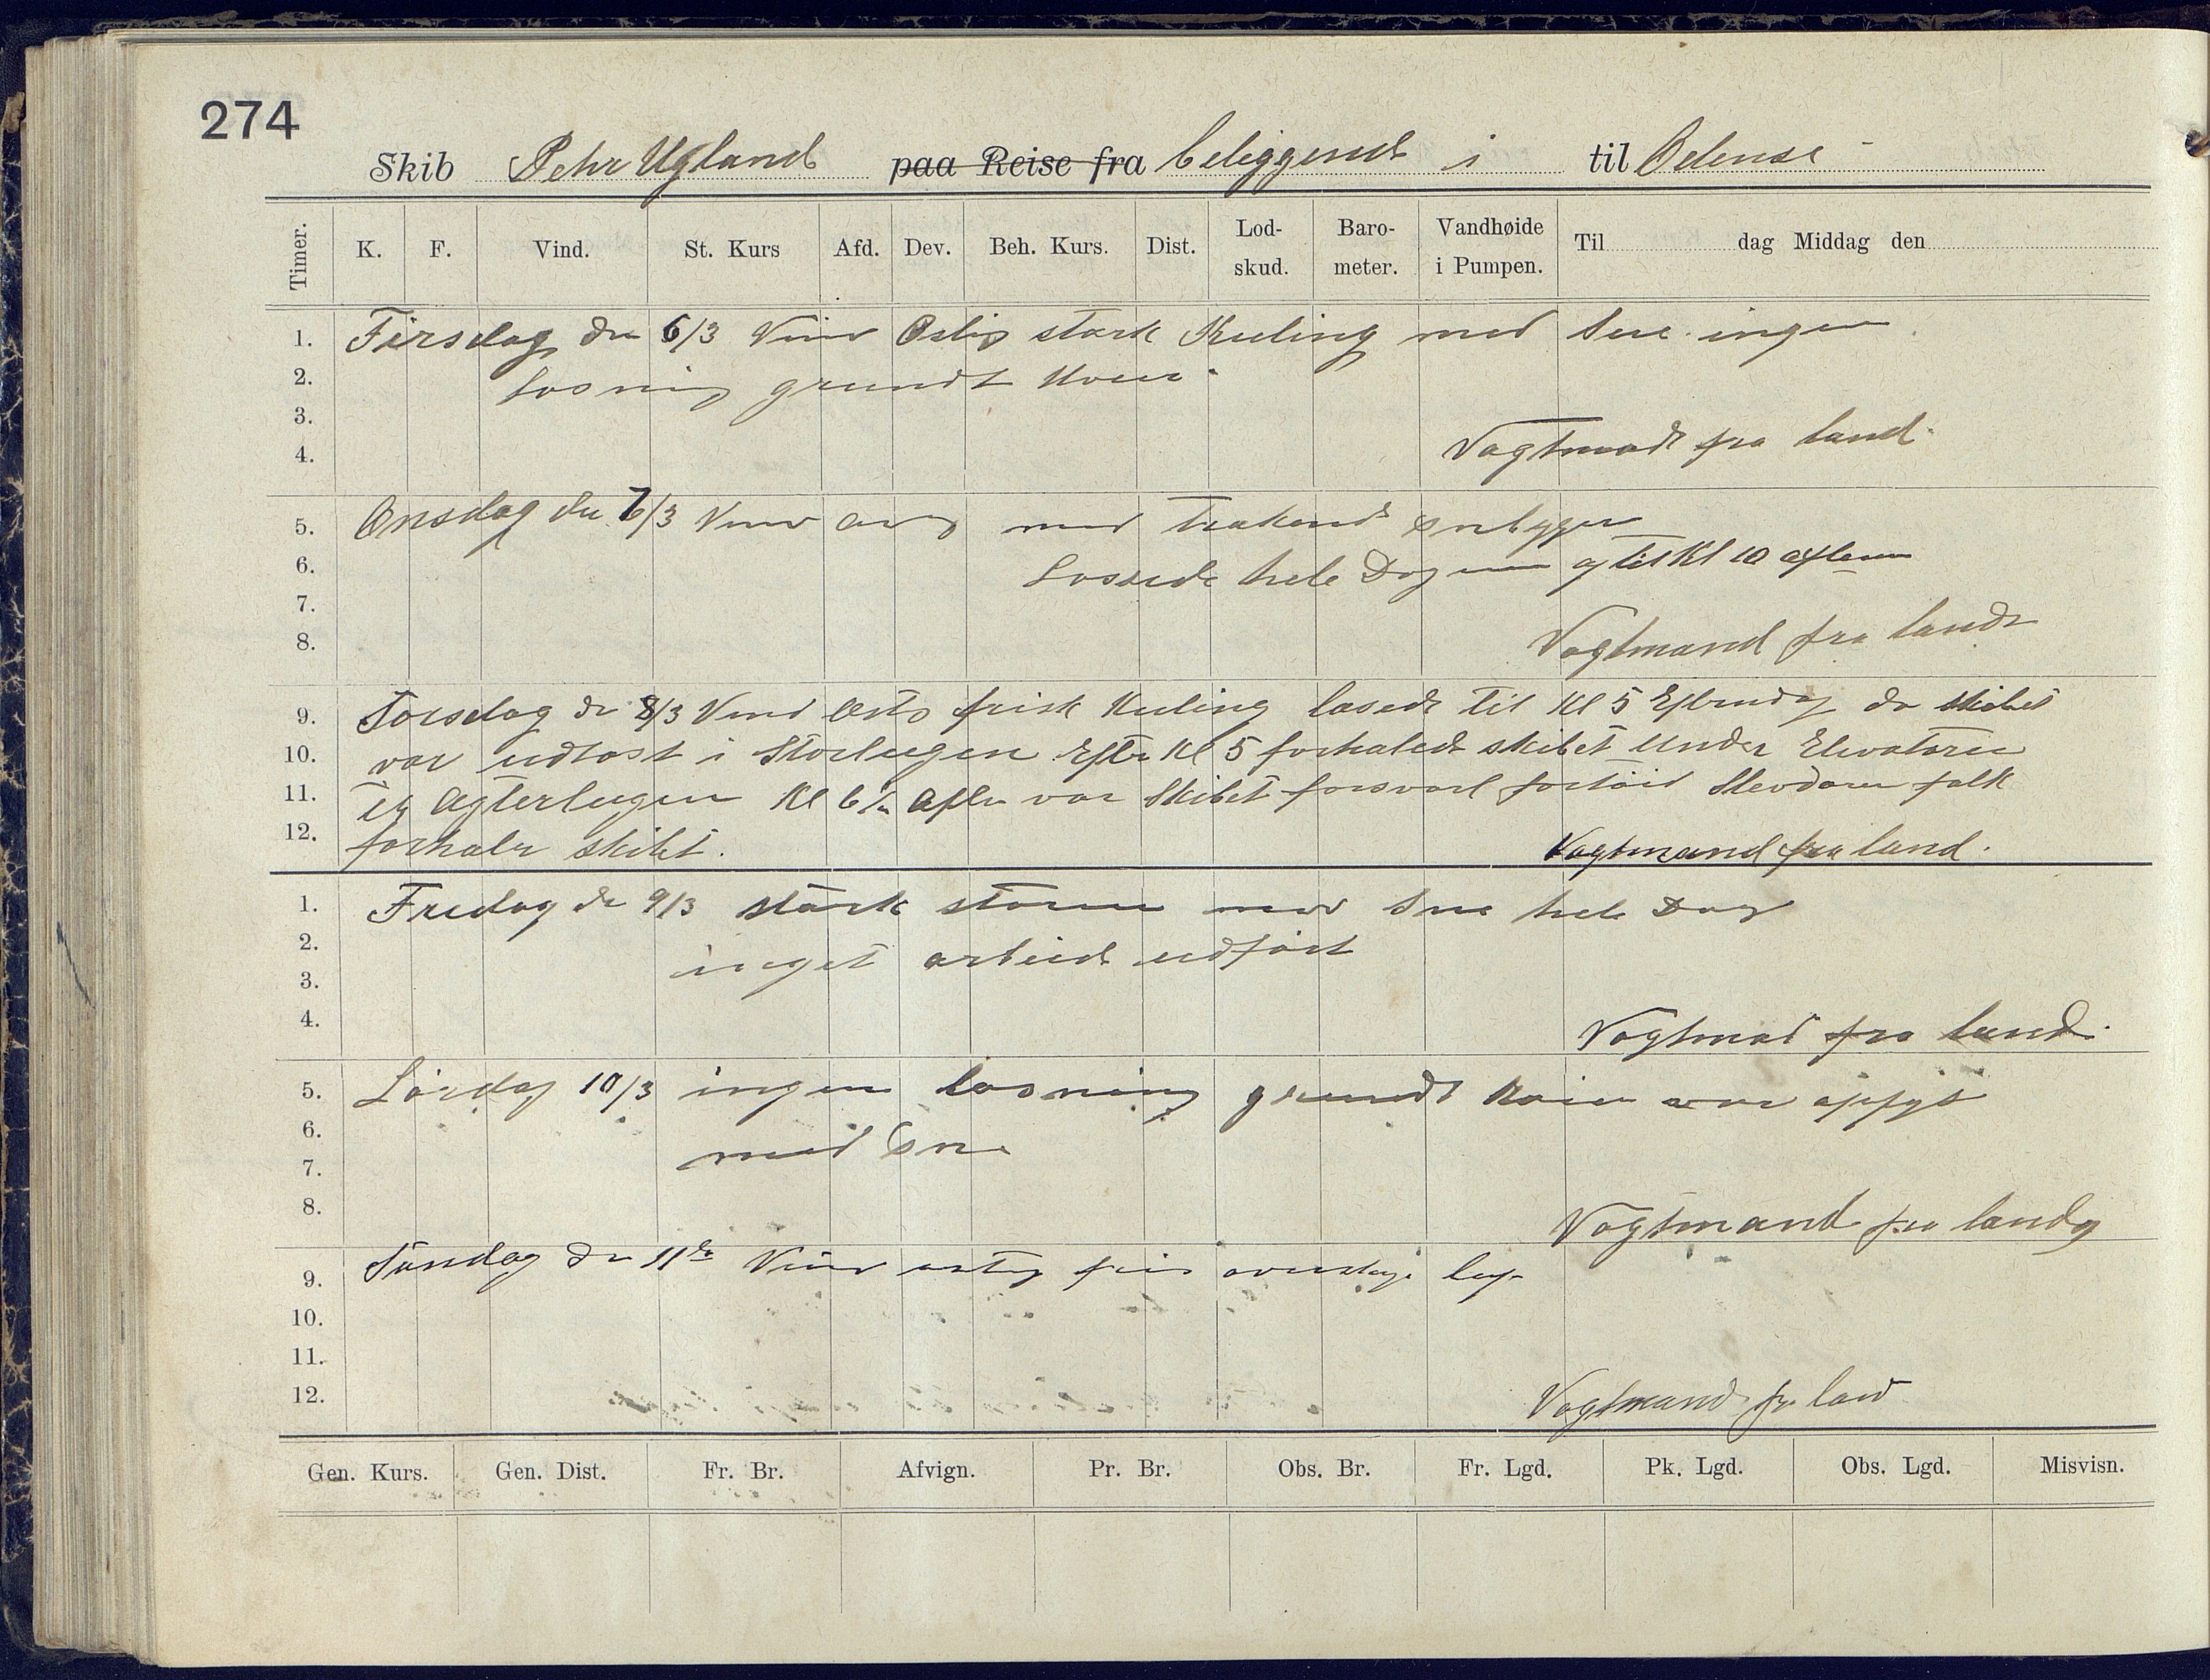 274
Skib Pehr Ugland paa Reise fra beliggende i til Odense
Timer. K. F. Vind. St. Kurs Afd. Dev. Beh. Kurs. Dist. Lod-skud. Baro-meter. Vandhøide i Pumpen. Til dag Middag den
1. Tirsdag den 6/3 Vind Ostlig stærk Kuling med Sne ingen
2. Losning grundt
3.
4. Vagtmand fra land.
5. Onsdag den 7/3 Vind med snebyger
6. Lossede hele Dagen og til Kl 10 aften
7.
8. Vagtmand fra land
9. Torsdag den 8/3 Vind Ostlig frisk Kuling losede til Kl 5 Eftermidag da skibet
10. var udlost i Storlugen Efter Kl 5 forhalede skibet under Elevatoren
11. til Agterlugen Kl 6 1/2 Aften var Skibet forsvarl fortøid Stevdorer folk
12. forhaler skibet. Vagtmand fra land.
1. Fredag den 9/3 stærk storm med Sne hele Dag
2. inget arbeide udført
3.
4. Vagtmand fra land.
5. Lørdag 10/3 ingen losning grundt Kaien var opfyt
6. med Sne
7.
8. Vagtmand fra land
9. Søndag den 11te Vind ostlig
10.
11.
12. Vagtmand fra land
Gen. Kurs. Gen. Dist. Fr. Br. Afvign. Pr. Br. Obs. Br. Fr. Lgd. Pk. Lgd. Obs. Lgd. Misvisn.